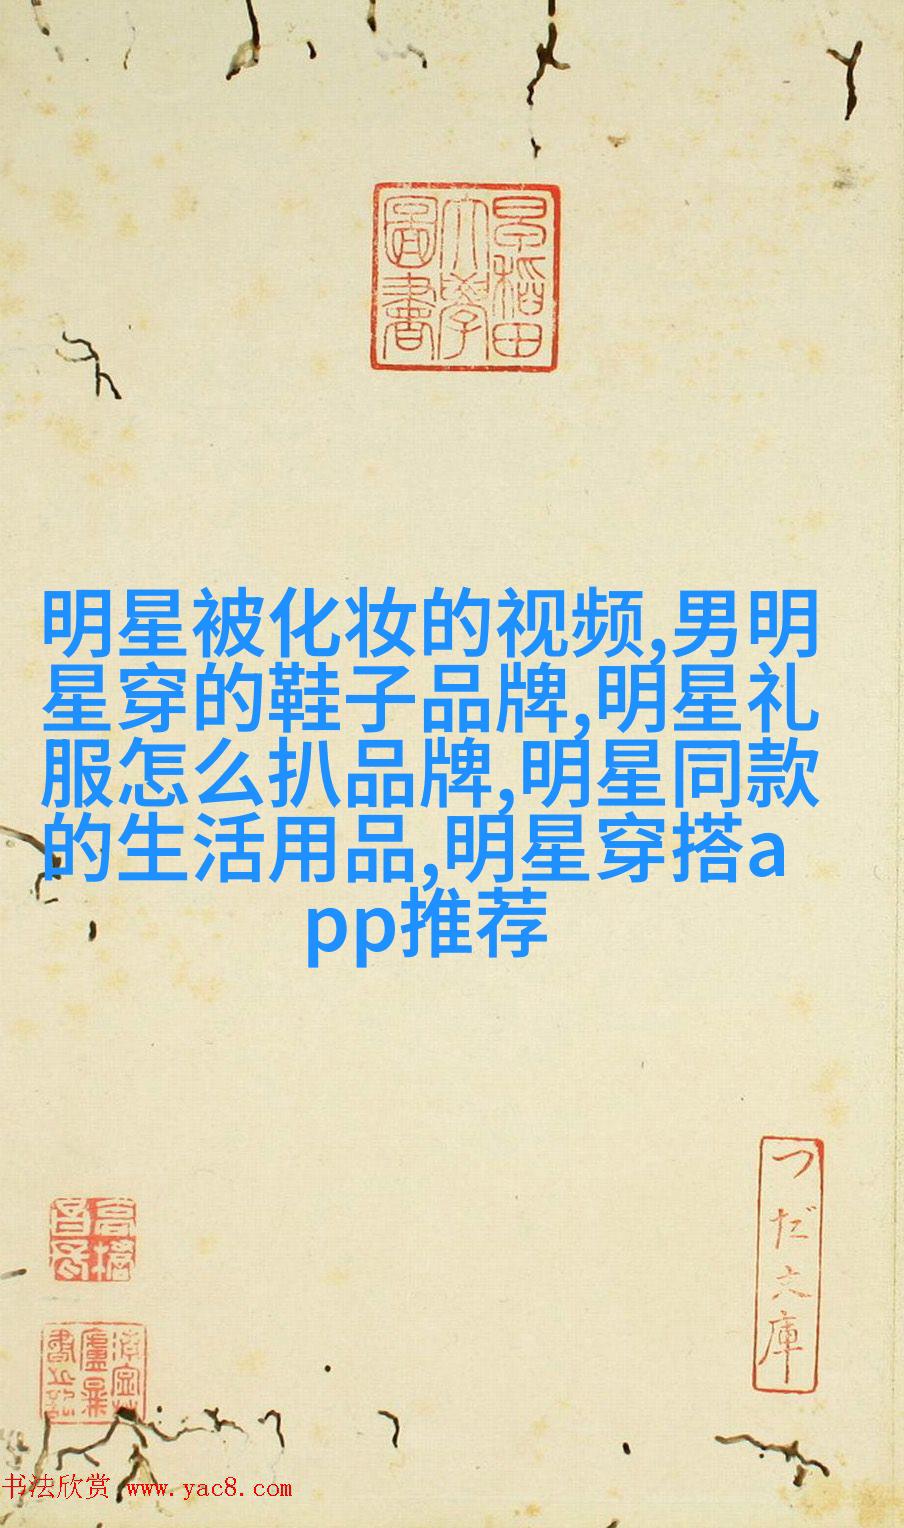 早稲田
大學
圖書
明星被化妆的视频,男明
星穿的鞋子品牌,明星礼
服怎么扒品牌,明星同款
的生活用品,明星穿搭a
pp推荐
つだ文庫
书法欣赏 www.yac8.com